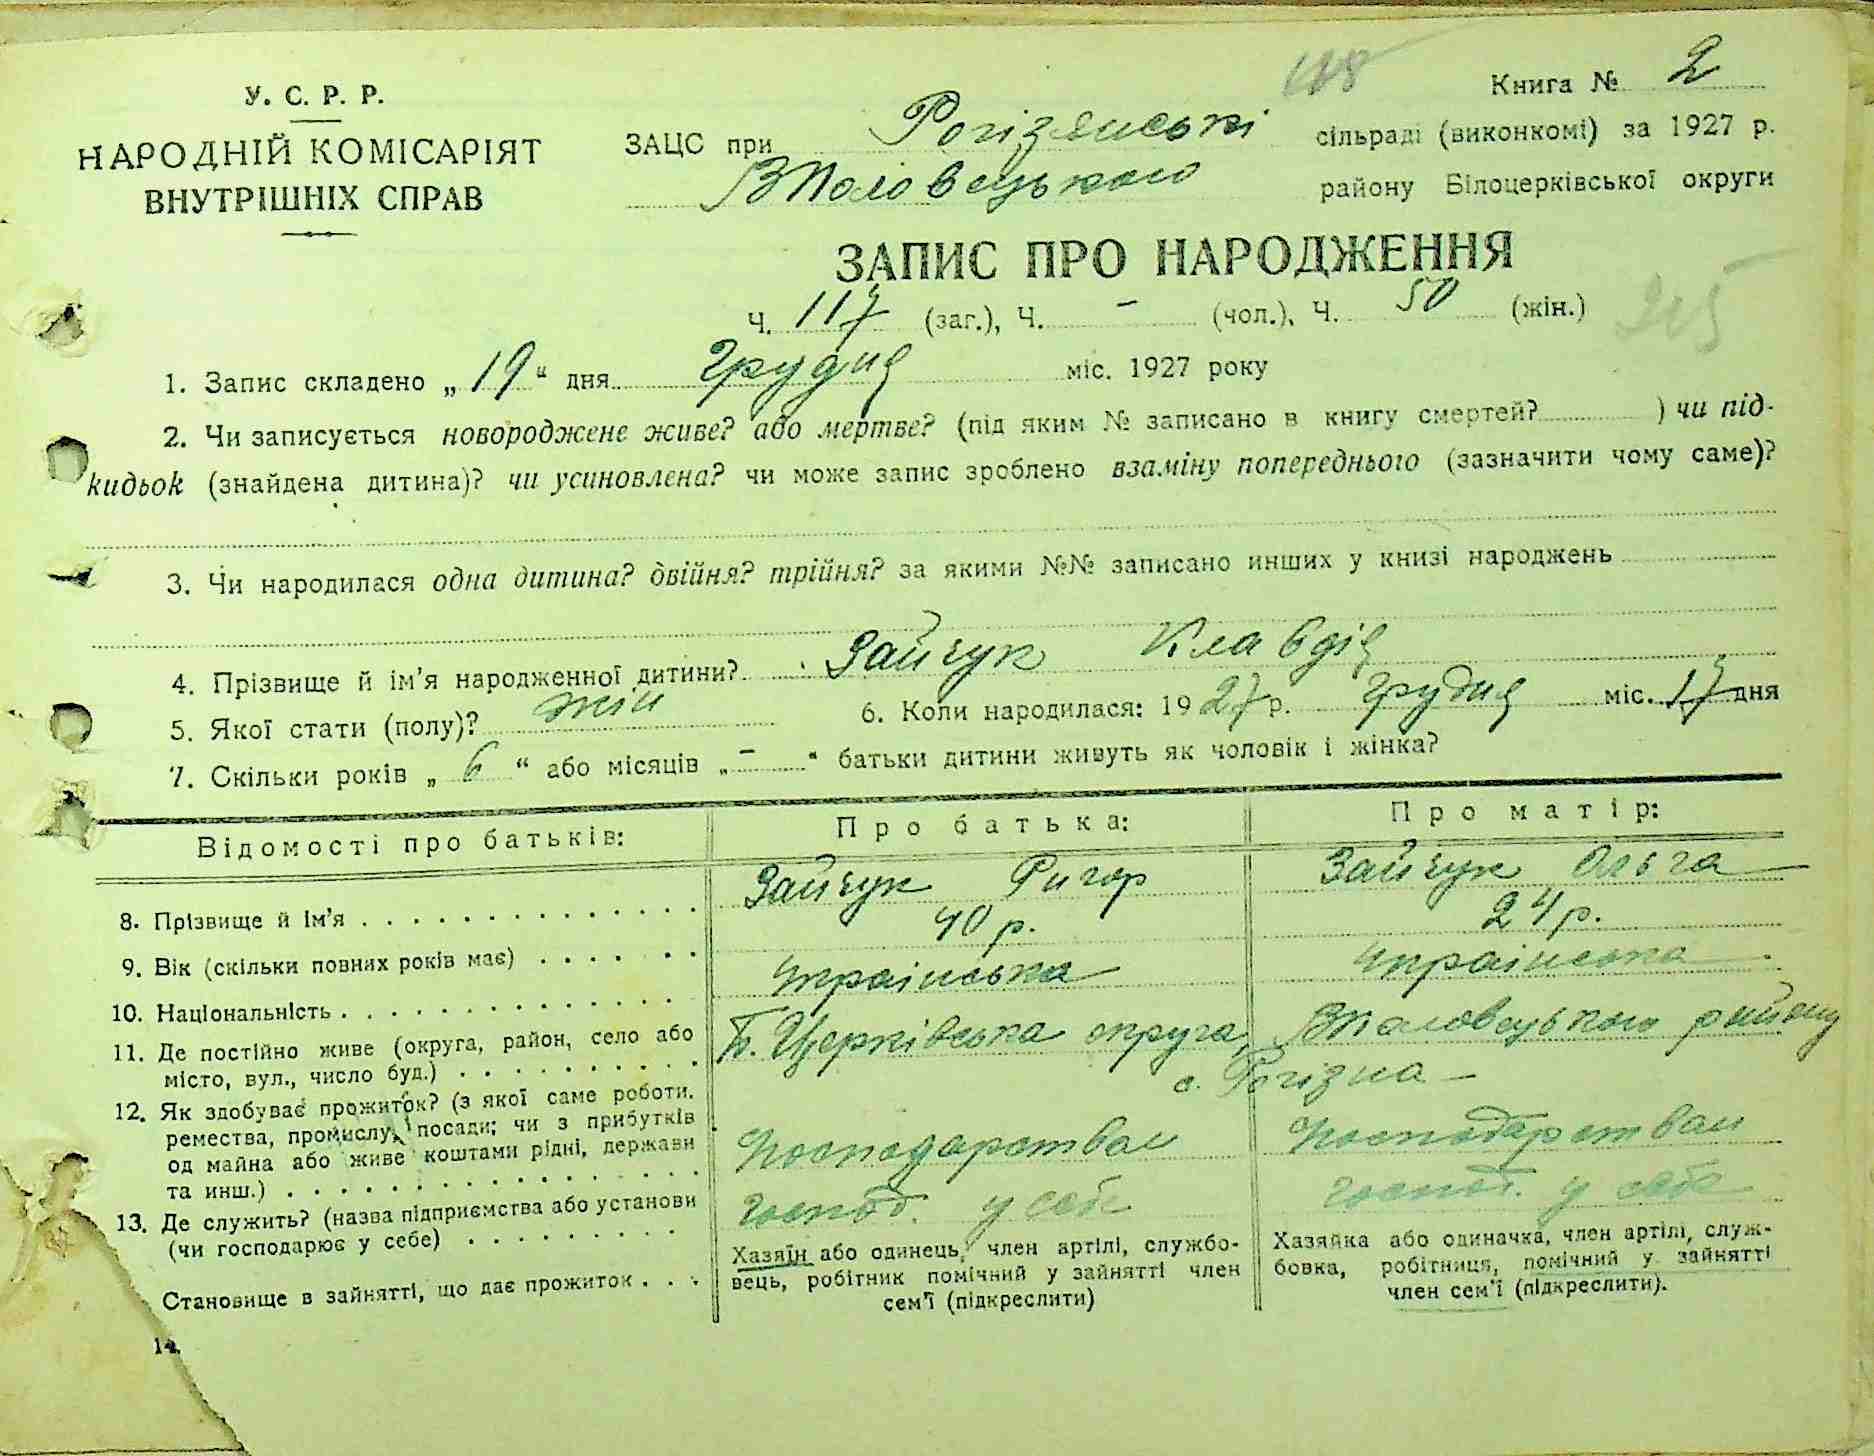 У. С. Р. Р.
НАРОДНІЙ КОМІСАРІЯТ
ВНУТРІШНІХ СПРАВ
Книга № 2
ЗАЦС при Рогізянські сільраді (виконкомі) за 1927 р.
ВПоловецького району Білоцерківської округи
ЗАПИС ПРО НАРОДЖЕННЯ
Ч. 117 (заг.), Ч. - (чол.), Ч. 50 (жін.)
1. Запис складено „ 19 “ дня Грудня міс. 1927 року
2. Чи записується новороджене живе? або мертве? (під яким № записано в книгу смертей? ) чи під-
кидьок (знайдена дитина)? чи усиновлена? чи може запис зроблено взаміну попереднього (зазначити чому саме)?
3. Чи народилася одна дитина? двійня? трійня? за якими №№ записано инших у книзі народжень
4. Прізвище й ім'я народженної дитини? Зайчук Клавдія
5. Якої стати (полу)? жін 6. Коли народилася: 1927 р. грудня міс. 17 дня
7. Скільки років „ 6 “ або місяців „ - “ батьки дитини живуть як чоловік і жінка?
Відомості про батьків: Про батька: Про матір:
8. Прізвище й ім'я Зайчук Ригор Зайчук Ольга
9. Вік (скільки повних років має) 40 р. 24 р.
10. Національність українська українська
11. Де постійно живе (округа, район, село або
місто, вул., число буд.) Б. Церківська округа, ВПоловецького району
с. Рогізна
12. Як здобуває прожиток? (з якої саме роботи,
ремества, промислу, посади; чи з прибутків
од майна або живе коштами рідні, держави
та инш.) Господарством Господарством
13. Де служить? (назва підприємства або установи
(чи господарює у себе) господ. у себе господ. у себе
Становище в зайнятті, що дає прожиток
Хазяїн або одинець, член артілі, службо-
вець, робітник помічний у зайнятті член
сем'ї (підкреслити)
Хазяйка або одиначка, член артілі, служ-
бовка, робітниця, помічний у зайнятті
член сем'ї (підкреслити).
14.